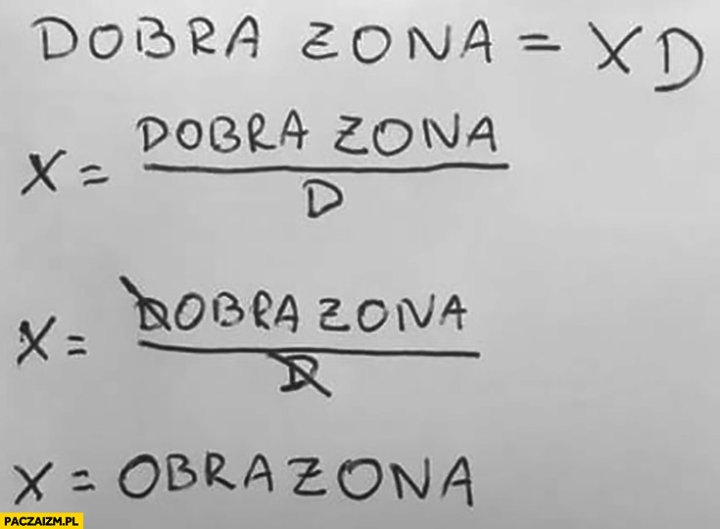 DOBRA ZONA = XD
X = DOBRA ZONA
D
X = DOBRA ZONA
D
X = OBRAZONA
PACZAIZM.PL